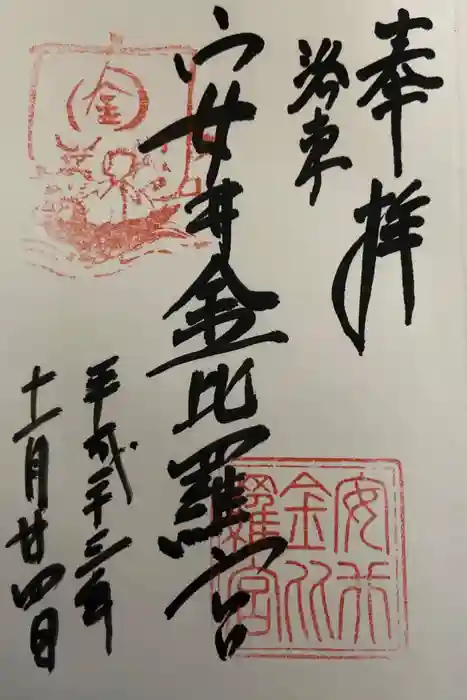 奉拝
洛東
安井金比羅宮
平成二十三年
十一月廿四日
金
安井
金比
羅宮